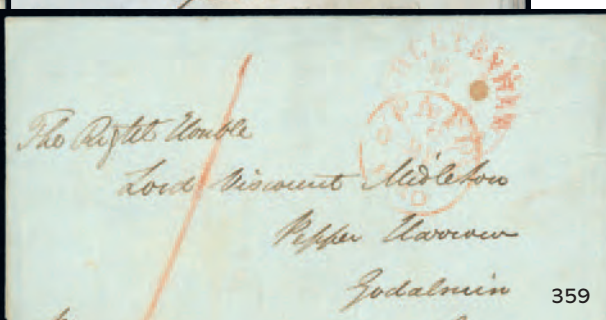 The Right Honble
Lord Viscount Midleton
Pepper Harrow
Godalmin
359